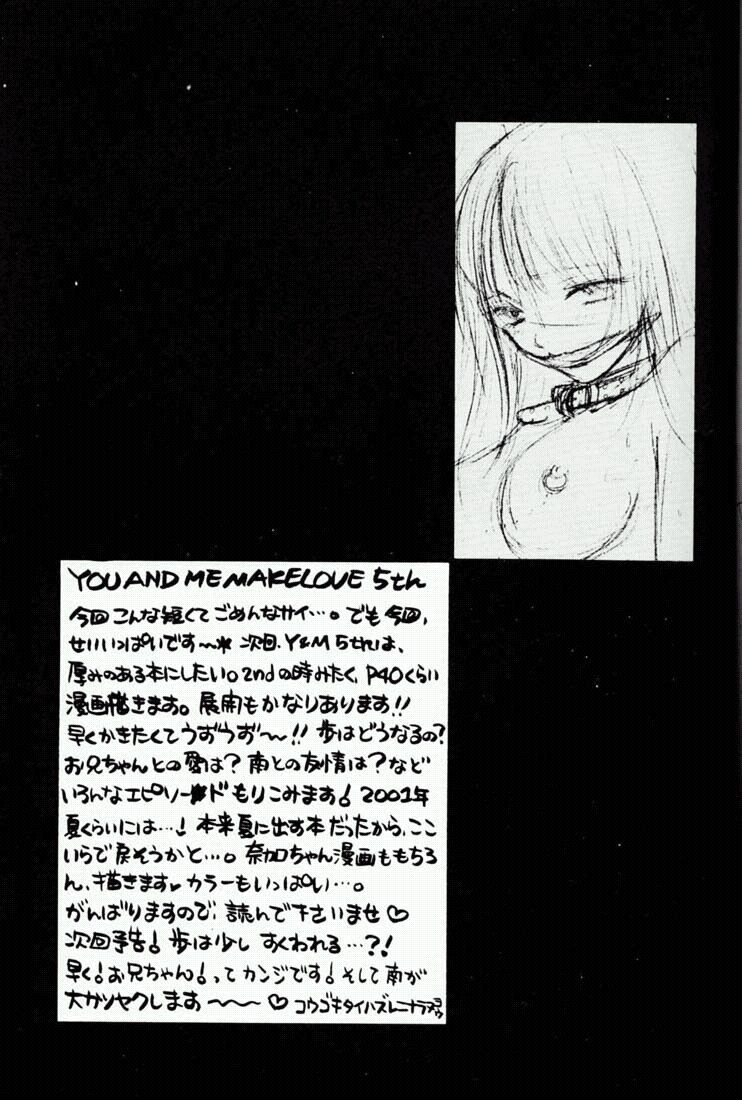 YOU AND ME MAKELOVE 5th
今回こんな短くてごめんなサイ…。でも今回、
せいいっぱいです〜* 次回、Y&M 5thは、
厚みのある本にしたい。2ndの時みたく、P40くらい
漫画描きます。展開もかなりあります!!
早くかきたくてうずうず〜!! 歩はどうなるの?
お兄ちゃんとの愛は?南との友情は?など
いろんなエピソードもりこみます!2001年
夏くらいには…!本来夏に出す本だったから、ここ
いらで戻そうかと…。奈加ちゃん漫画ももちろ
ん、描きます♥カラーもいっぱい…。
がんばりますので、読んで下さいませ♡
次回予告!歩は少しすくわれる…?!
早く!お兄ちゃん!ってカンジです!そして南が
大カツヤクします〜〜♡